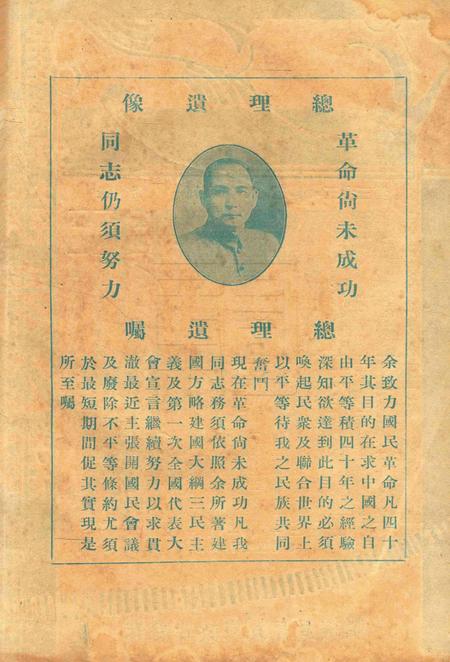 總理遺像
革命尙未成功
同志仍須努力
總理遺囑
余致力國民革命凡四十
年其目的在求中國之自
由平等積四十年之經驗
深知欲達到此目的必須
喚起民衆及聯合世界上
以平等待我之民族共同
奮鬥
現在革命尙未成功凡我
同志務須依照余所著建
國方略建國大綱三民主
義及第一次全國代表大
會宣言繼續努力以求貫
澈最近主張開國民會議
及廢除不平等條約尤須
於最短期間促其實現是
所至囑